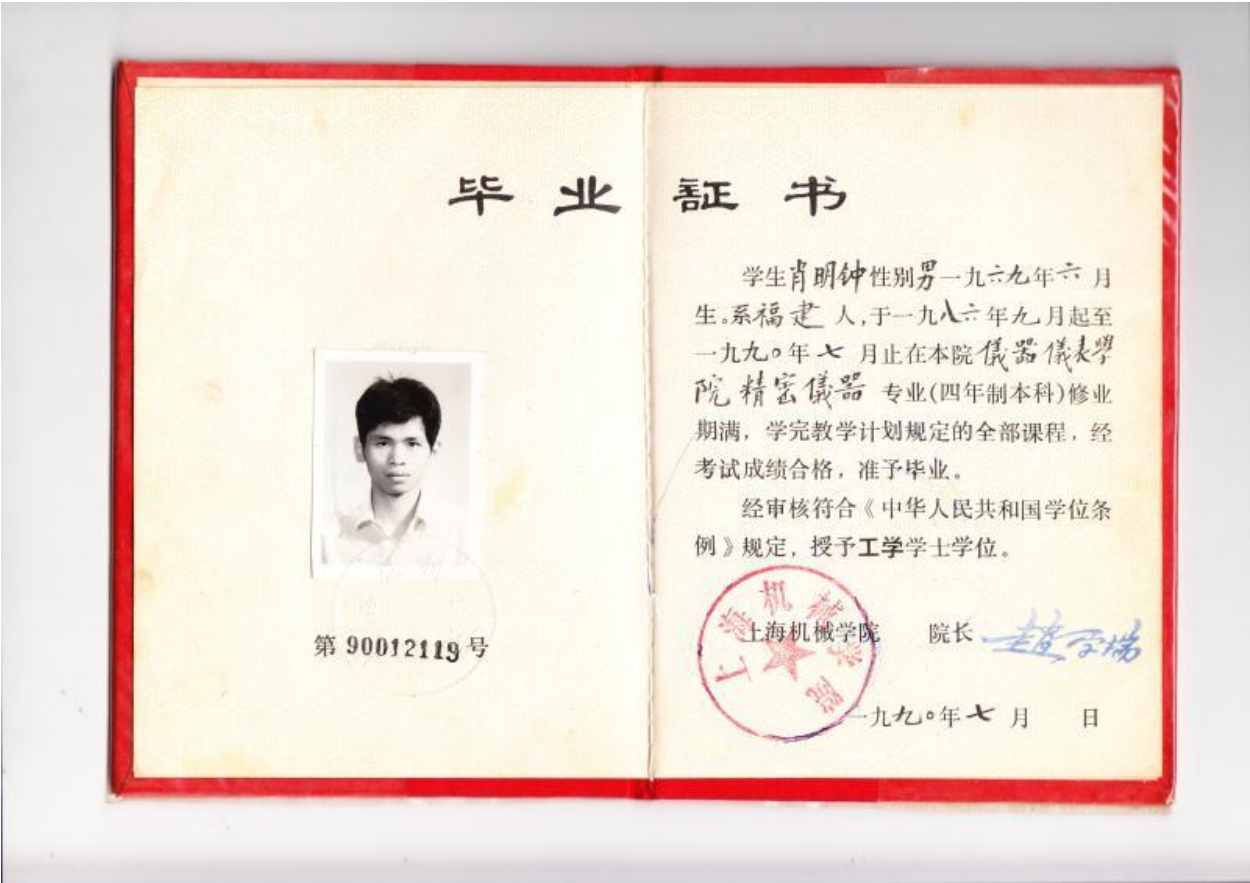 毕业証书
学生肖明钟性别男一九六九年六月
生。系福建人,于一九八六年九月起至
一九九〇年七月止在本院儀器儀表學
院精密儀器专业(四年制本科)修业
期满，学完教学计划规定的全部课程，经
考试成绩合格，准予毕业。
经审核符合《中华人民共和国学位条
例》规定，授予工学学士学位。
上海机械学院
上海机械学院 院长
一九九〇年七月 日
第90012119号